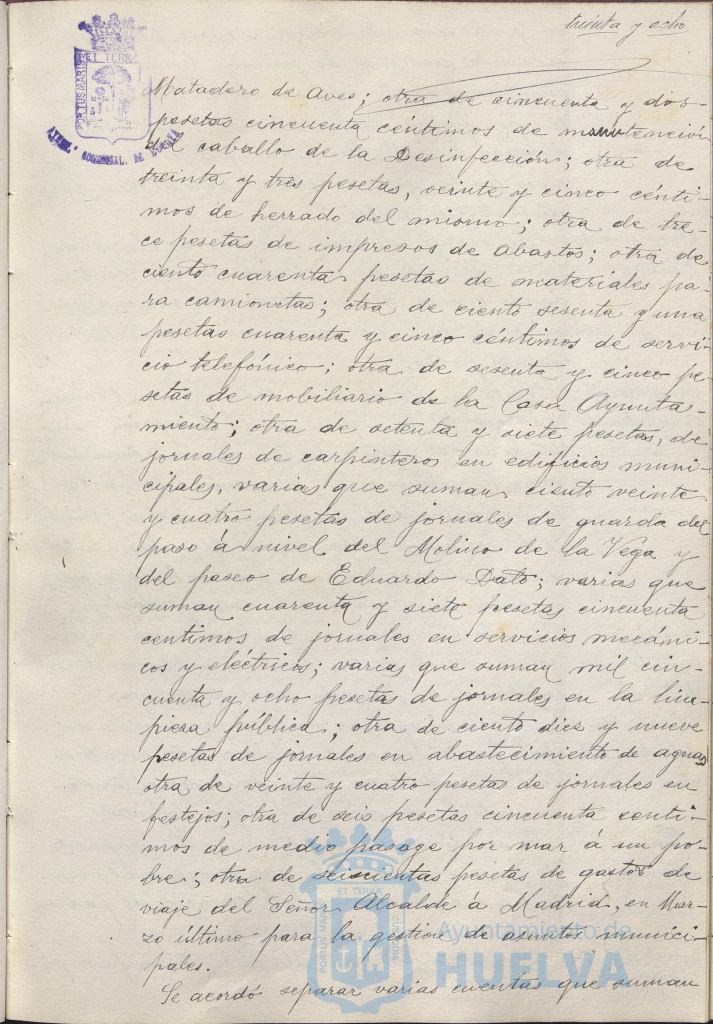 treinta y ocho
PORTUS MARIS ET TERRÆ
Matadero de Aves; otra de cincuenta y dos
pesetas cincuenta céntimos de manutención
del caballo de la Desinfección; otra de
treinta y tres pesetas, veinte y cinco cénti-
mos de herrado del mismo; otra de tre-
ce pesetas de impresos de abastos; otra de
ciento cuarenta pesetas de materiales pa-
ra camionetas; otra de ciento sesenta y una
pesetas cuarenta y cinco céntimos de servi-
cio telefónico; otra de sesenta y cinco pe-
setas de mobiliario de la Casa Ayunta-
miento; otra de setenta y siete pesetas, de
jornales de carpinteros en edificios muni-
cipales, varias que suman ciento veinte
y cuatro pesetas de jornales de guarda del
paso á nivel del Molino de la Vega y
del paseo de Eduardo Dato; varias que
suman cuarenta y siete pesetas cincuenta
centimos de jornales en servicios mecáni-
cos y eléctricos; varias que suman mil cin-
cuenta y ocho pesetas de jornales en la lim-
pieza pública; otra de ciento diez y nueve
pesetas de jornales en abastecimiento de aguas
otra de veinte y cuatro pesetas de jornales en
festejos; otra de seis pesetas cincuenta centi-
mos de medio pasage por mar á un po-
bre; otra de seiscientas pesetas de gastos de
viaje del Señor Alcalde á Madrid, en Mar-
zo último para la gestion de asuntos munici-
pales.
Se acordó separar varias cuentas que suman
PORTUS MARIS ET TERRÆ CUSTODIA
Ayuntamiento de
HUELVA